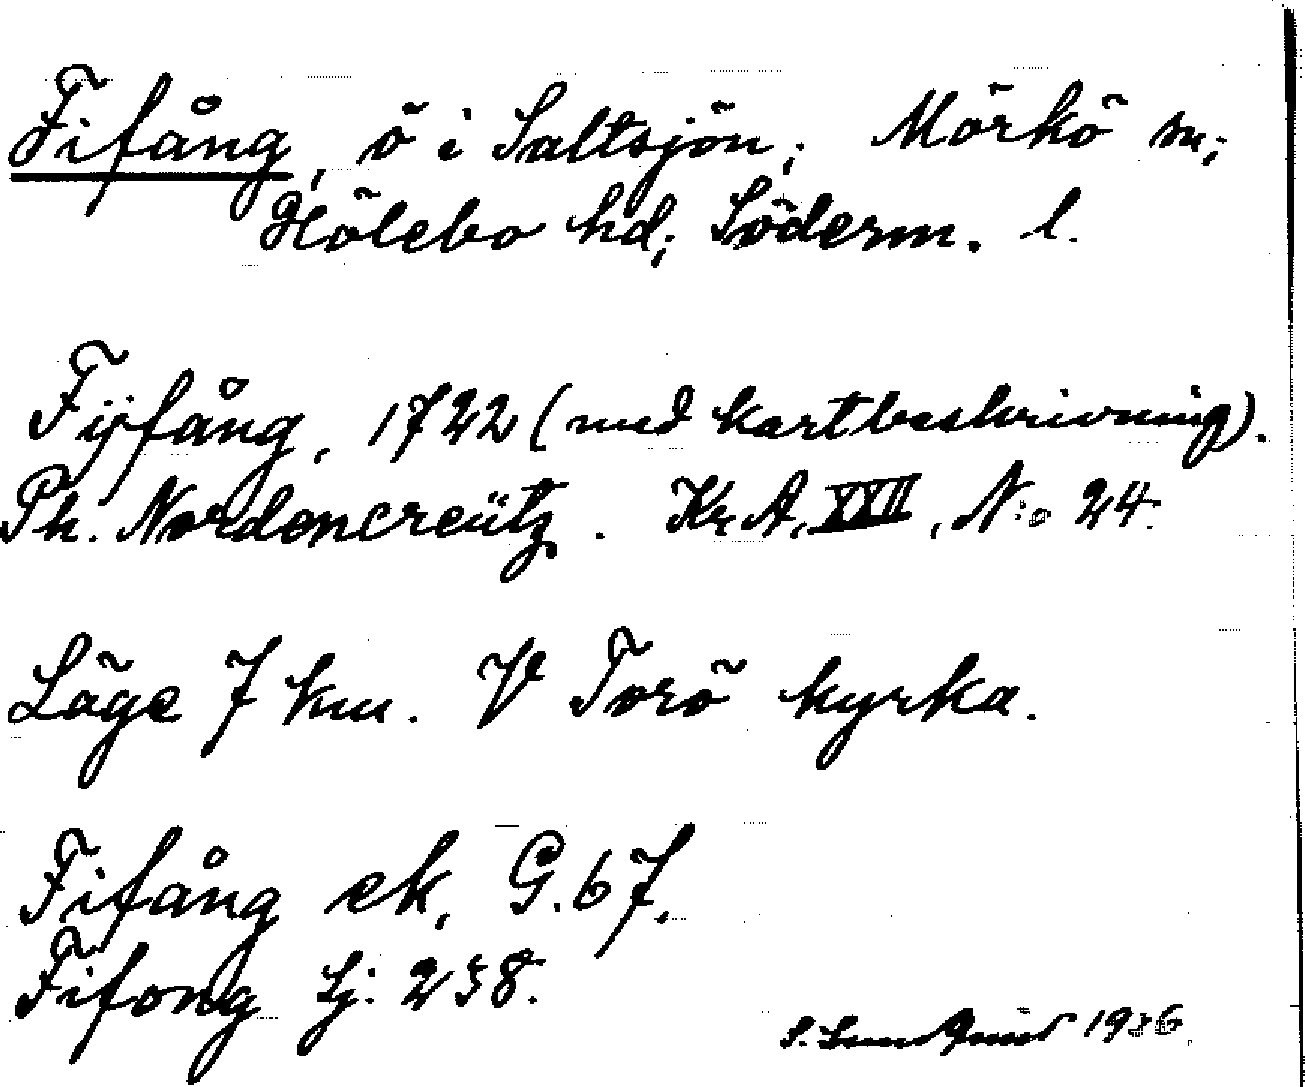 Fifång, ö i Saltsjön; Mörkö sn;
Hölebo hd; Söderm. l.
Fijfång, 1722 (med kartbeskrivning).
Ph. Nordencreütz. Kr. A. XXII, N:o 24.
Läge 7 km. V Torö kyrka.
Fifång ek, G. 67.
Fifong Sj. 238.
S. Lundqvist 1936